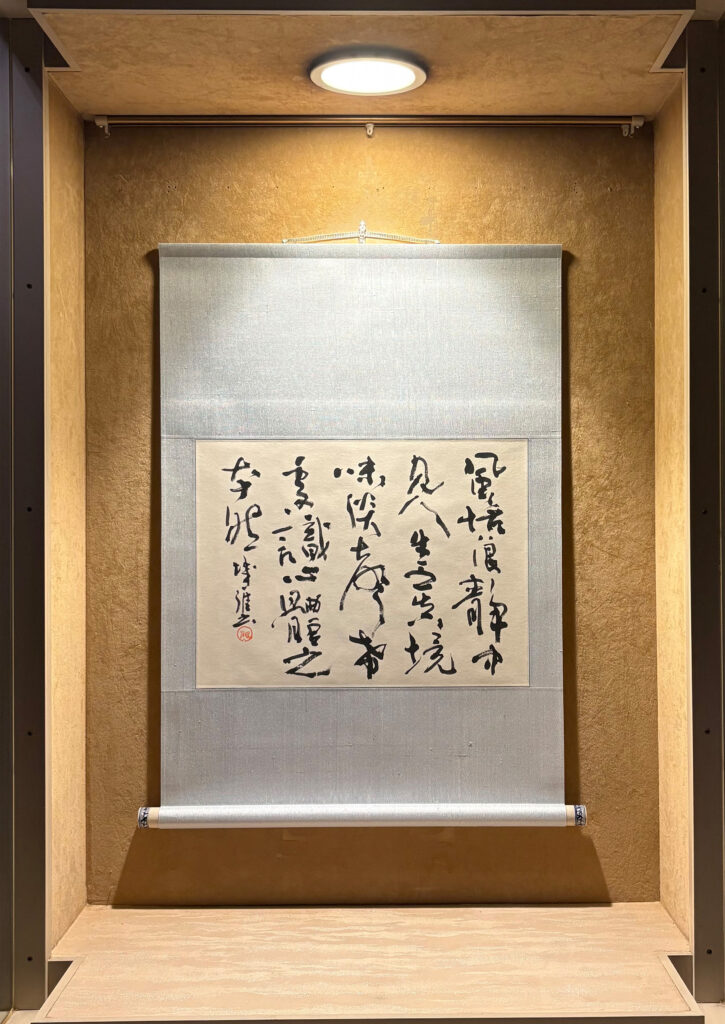 風恬浪靜中
見人生之真境
味淡聲希
處識心體之
本然